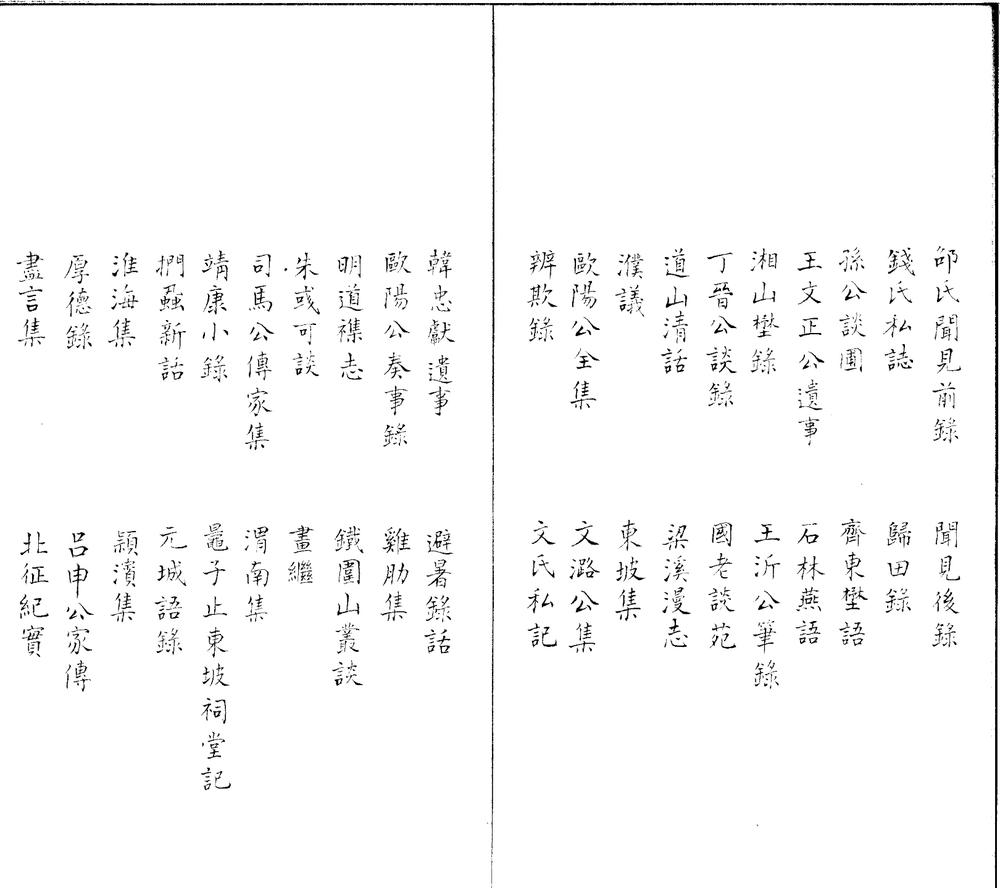 邵氏聞見前錄　聞見後錄
錢氏私誌　歸田錄
孫公談圃　齊東壄語
王文正公遺事　石林燕語
湘山壄錄　王沂公筆錄
丁晉公談錄　國老談苑
道山清話　梁溪漫志
濮議　東坡集
歐陽公全集　文潞公集
辨欺錄　文氏私記
韓忠獻遺事　避暑錄話
歐陽公奏事錄　雞肋集
明道襍志　鐵圍山叢談
朱彧可談　畫繼
司馬公傳家集　渭南集
靖康小錄　鼂子止東坡祠堂記
捫蝨新話　元城語錄
淮海集　潁濱集
厚德錄　呂申公家傳
盡言集　北征紀實